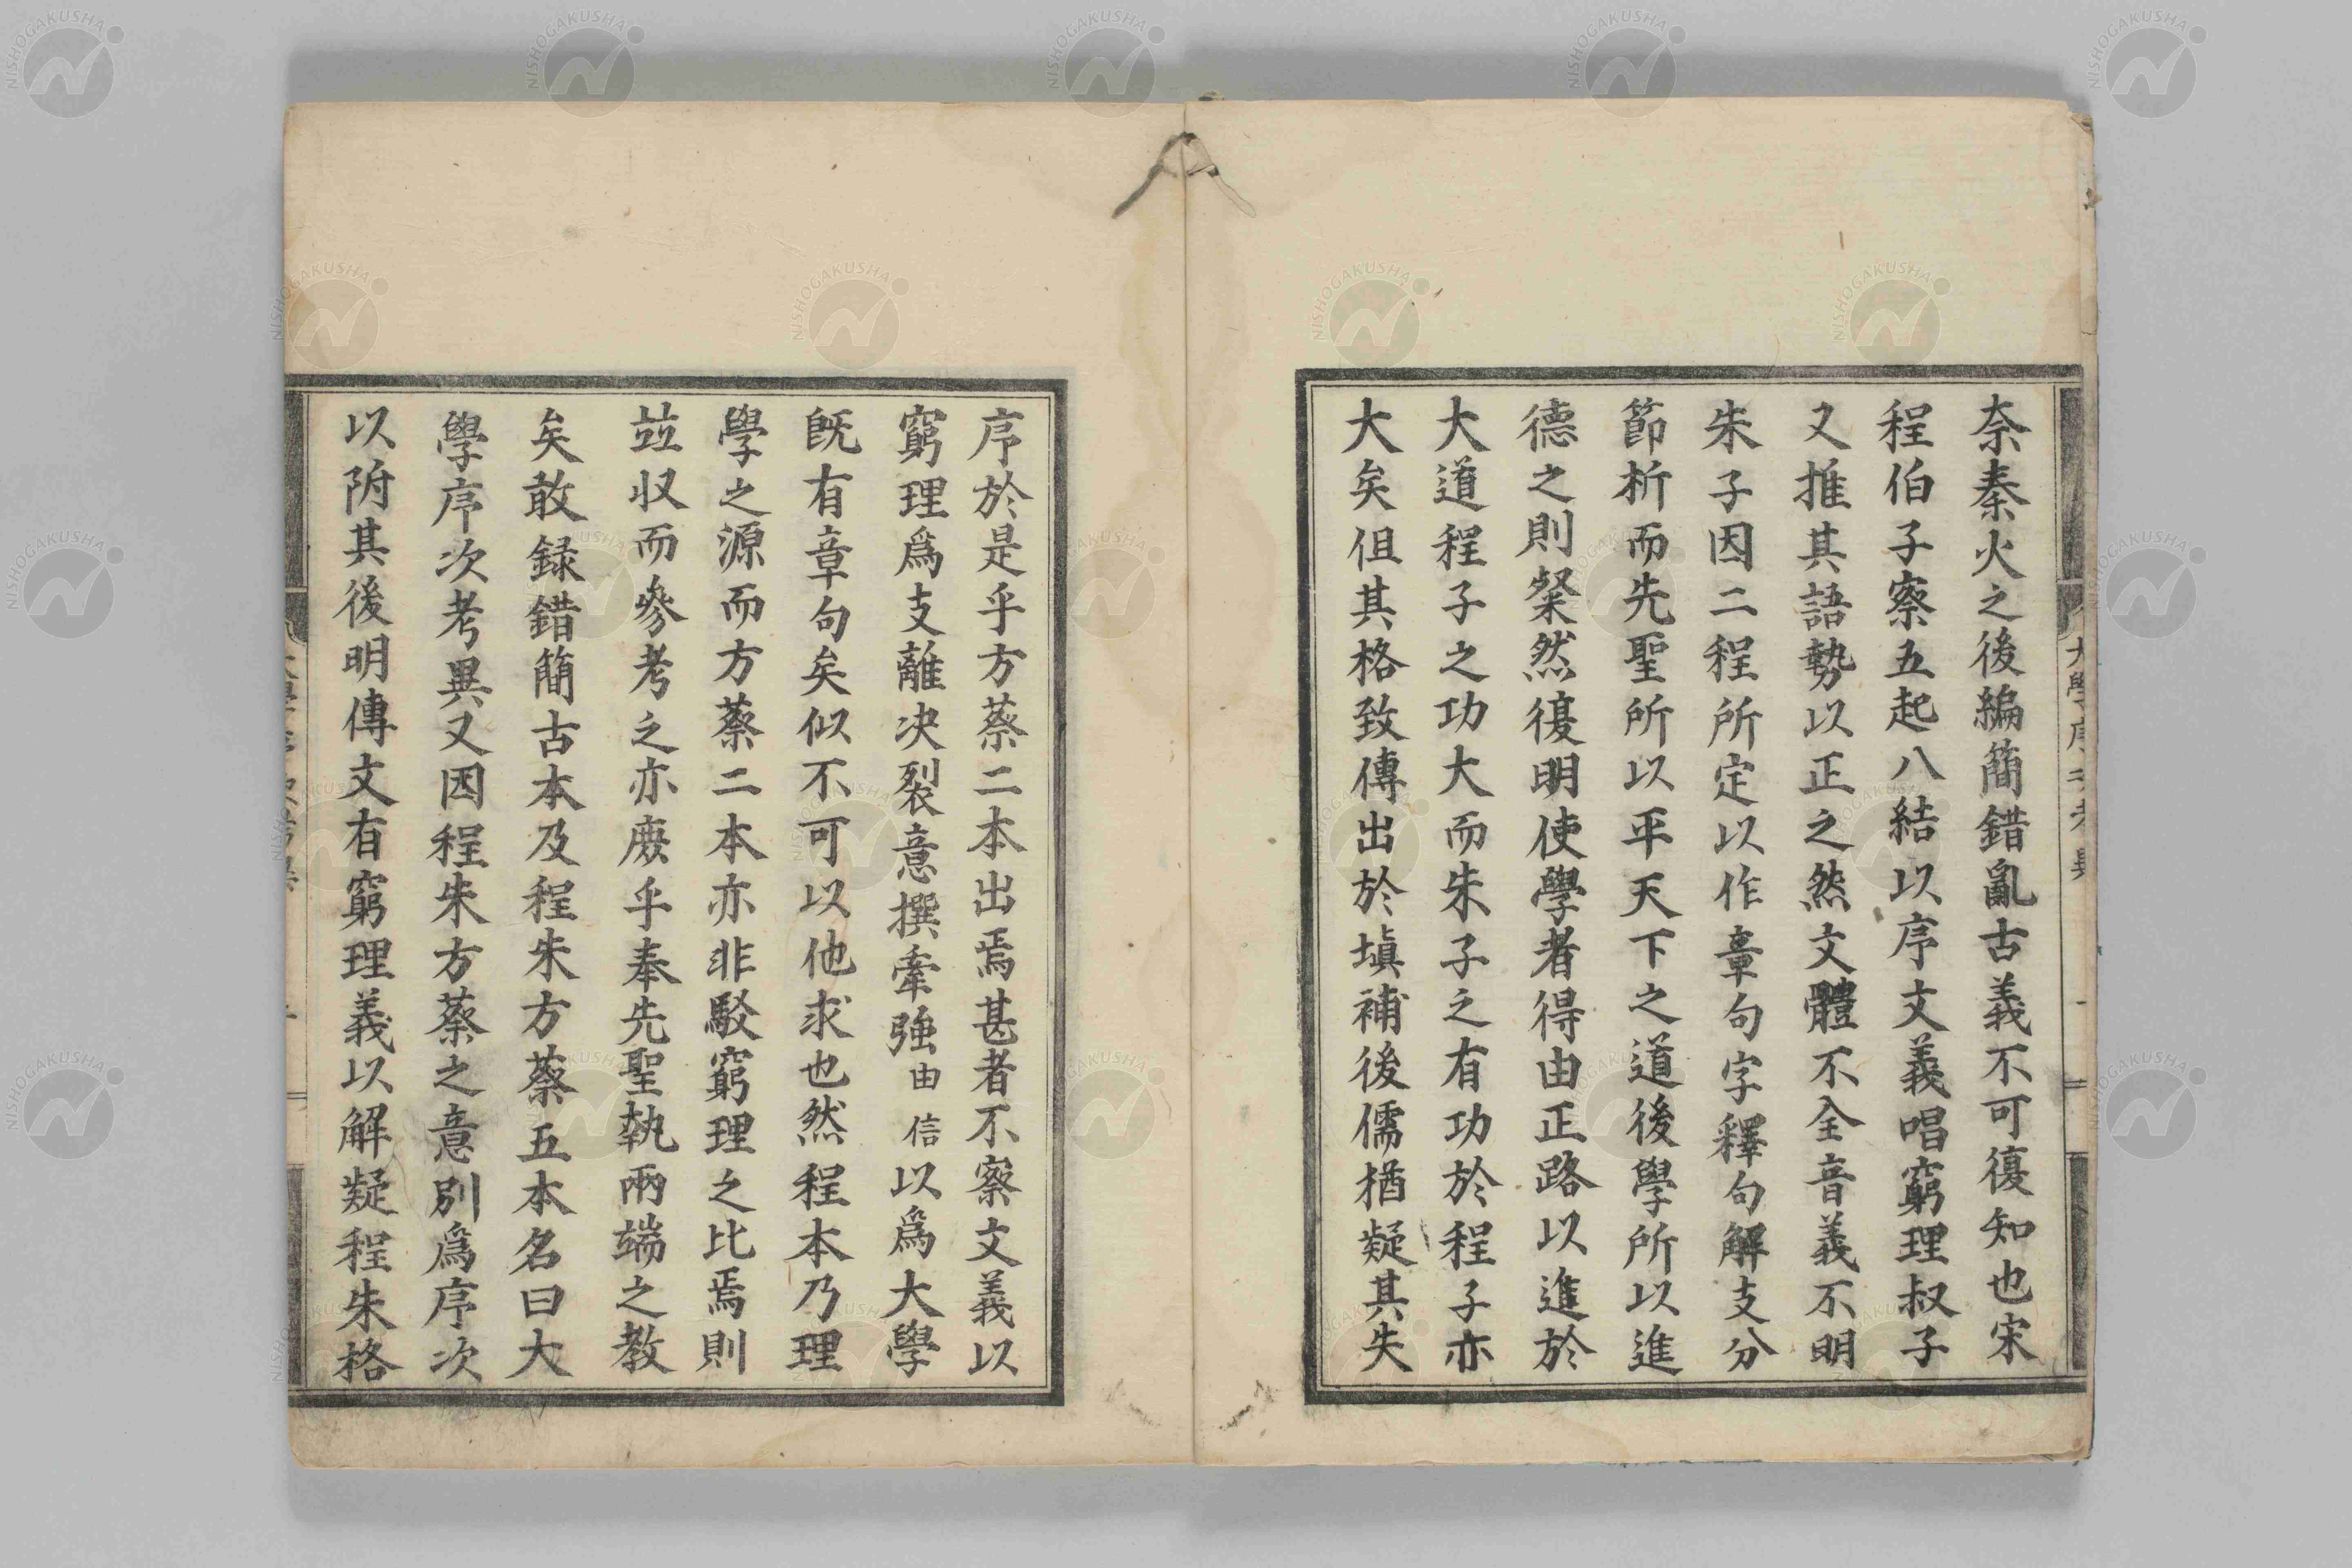 奈秦火之後編簡錯亂古義不可復知也宋
程伯子察五起八結以序文義唱窮理叔子
又推其語勢以正之然文體不全音義不明
朱子因二程所定以作章句字釋句解支分
節析而先聖所以平天下之道後學所以進
德之則粲然復明使學者得由正路以進於
大道程子之功大而朱子之有功於程子亦
大矣但其格致傳出於塡補後儒猶疑其失
序於是乎方蔡二本出焉甚者不察文義以
窮理爲支離决裂意撰牽強由信以爲大學
既有章句矣似不可以他求也然程本乃理
學之源而方蔡二本亦非駁窮理之比焉則
竝収而參考之亦庶乎奉先聖執兩端之教
矣敢録錯簡古本及程朱方蔡五本名曰大
學序次考異又因程朱方蔡之意別爲序次
以附其後明傳文有窮理義以解疑程朱格
NISHOGAKUSHA